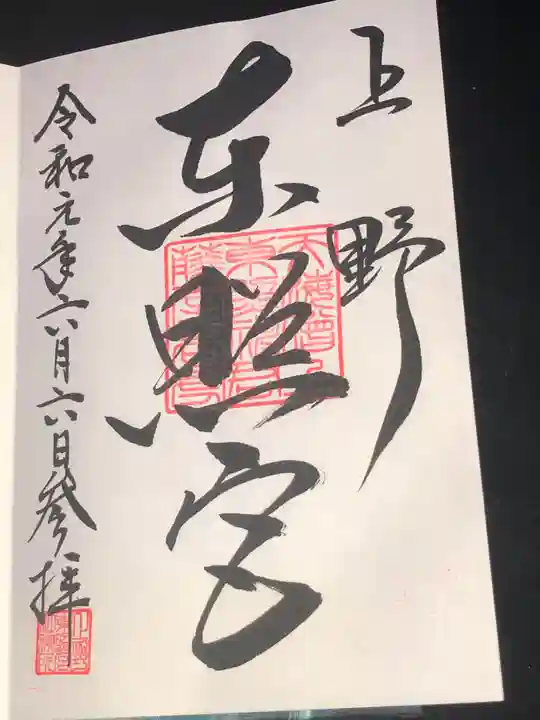 上野
東照宮
令和元年六月六日参拝